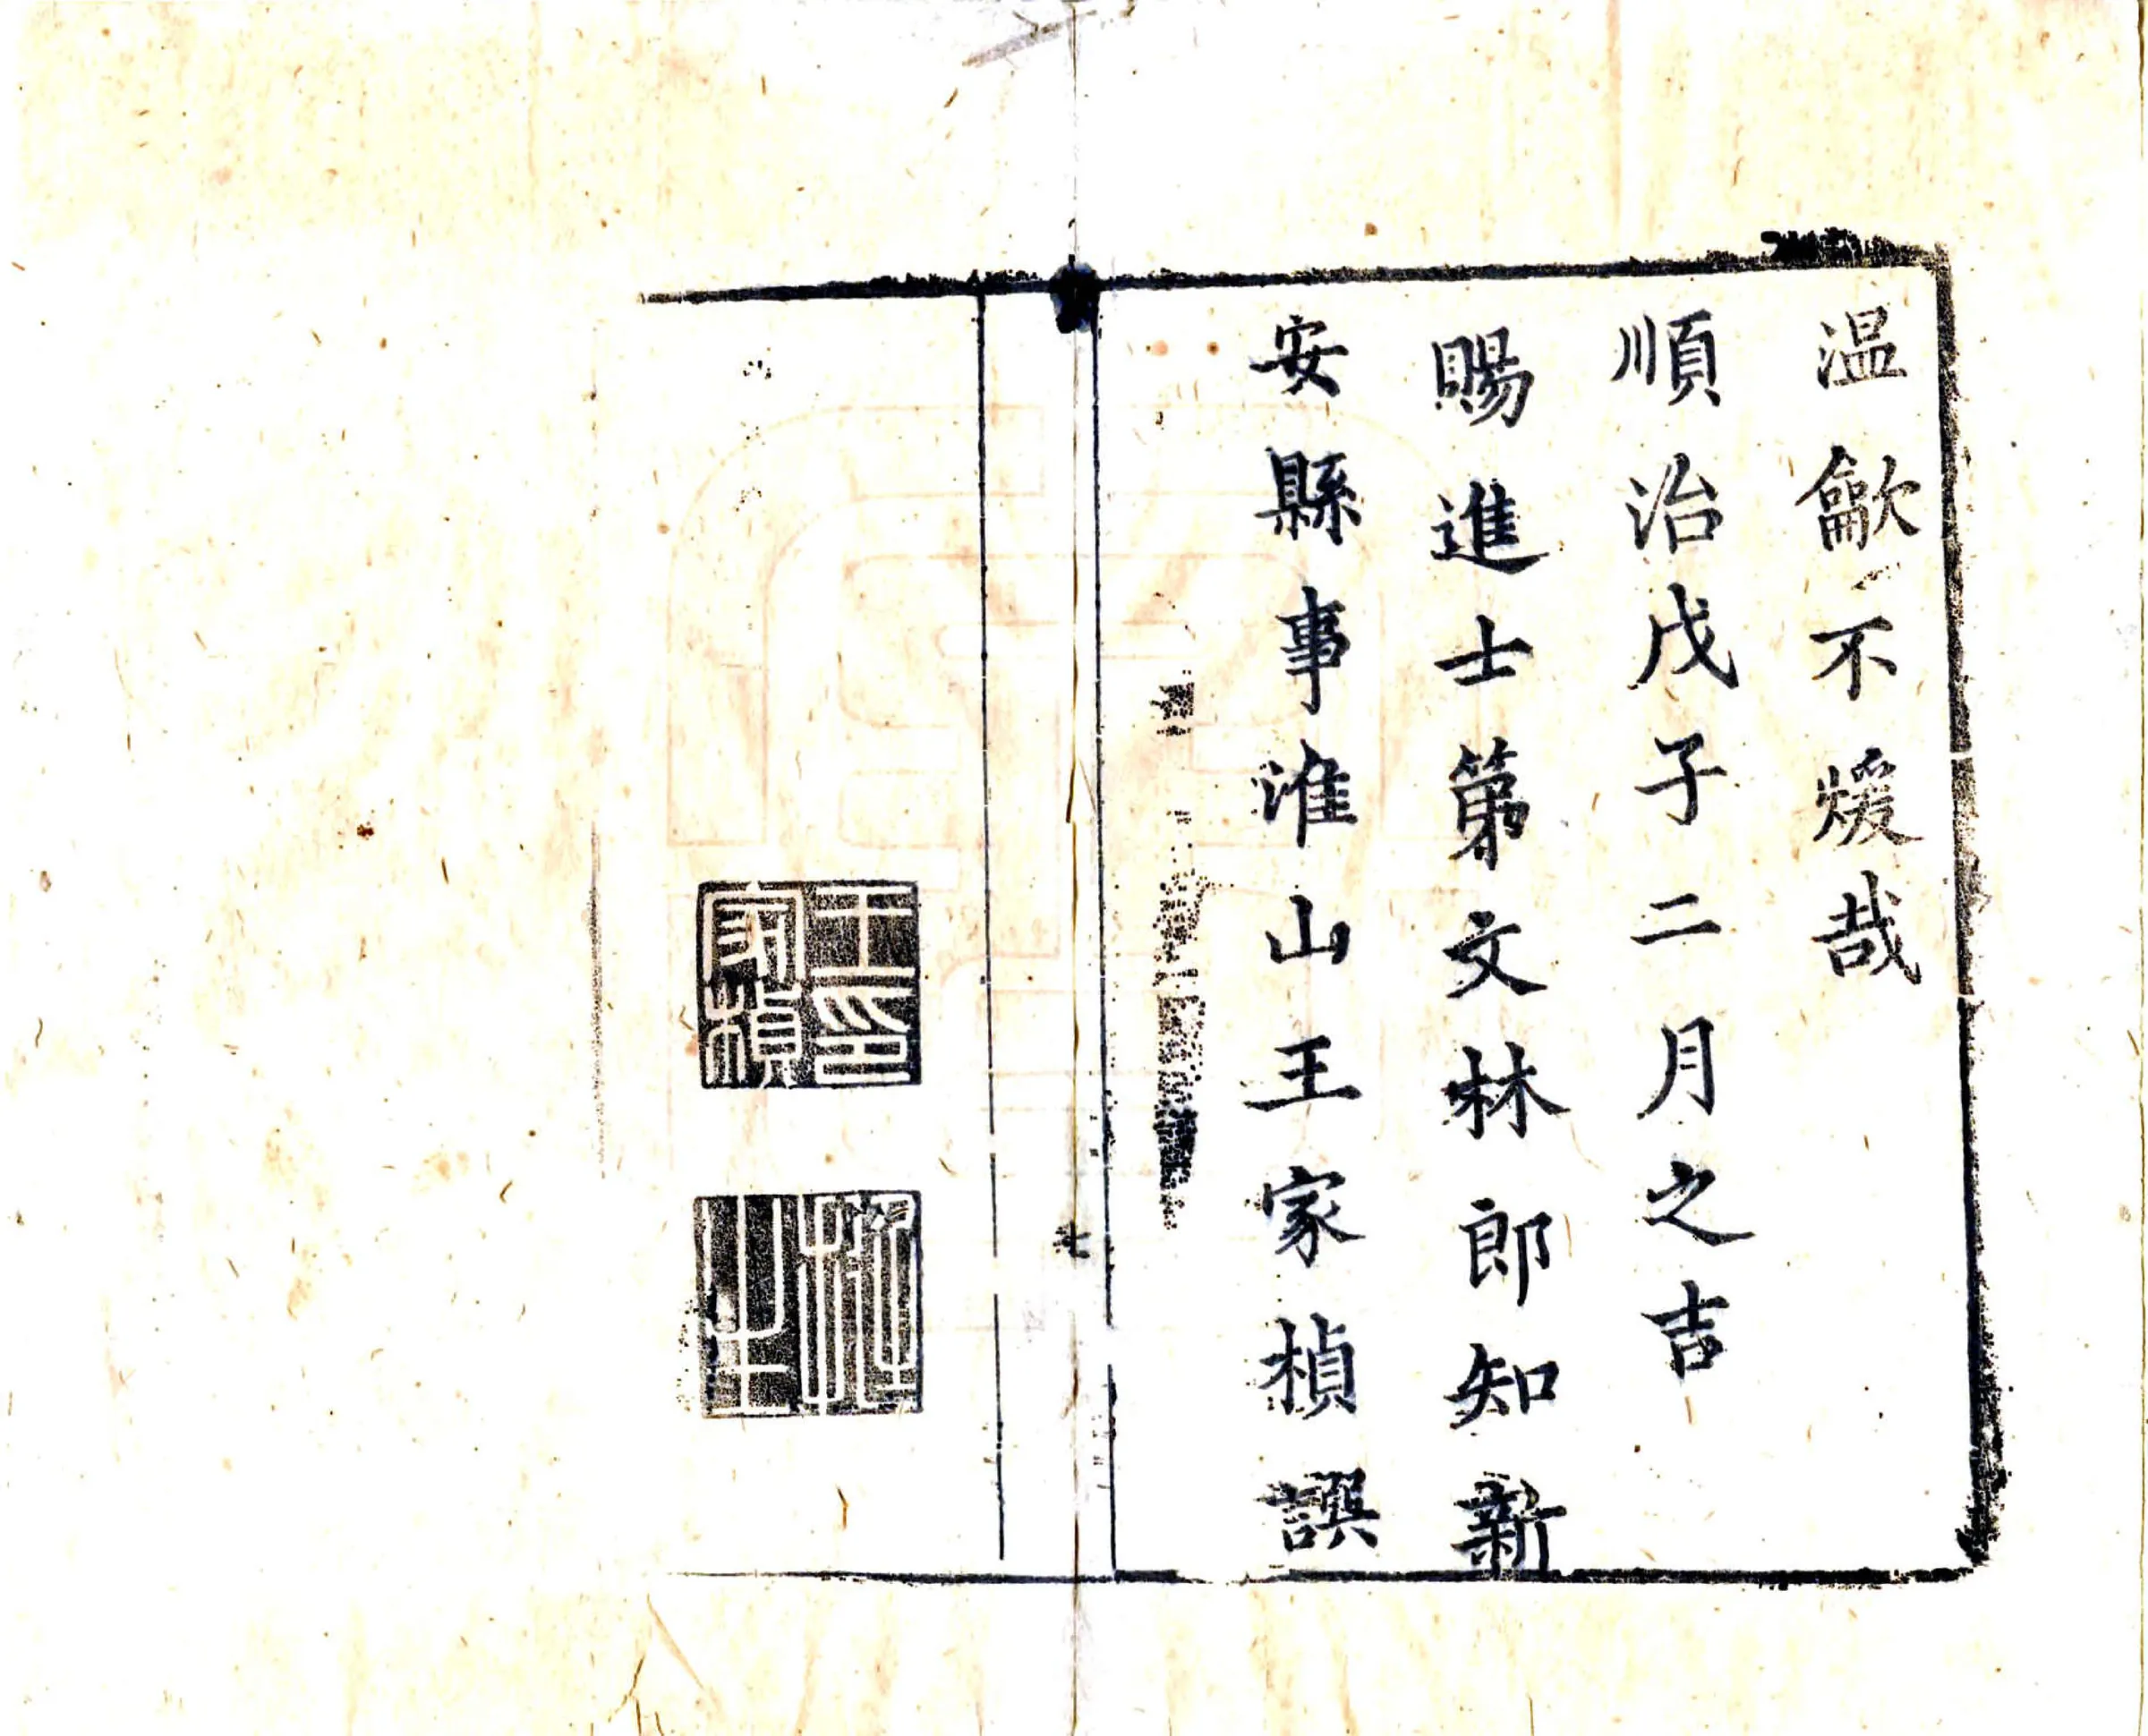 温龡不煖哉
順治戊子二月之吉
賜進士第文林郎知新
安縣事淮山王家楨譔
七
王印家楨